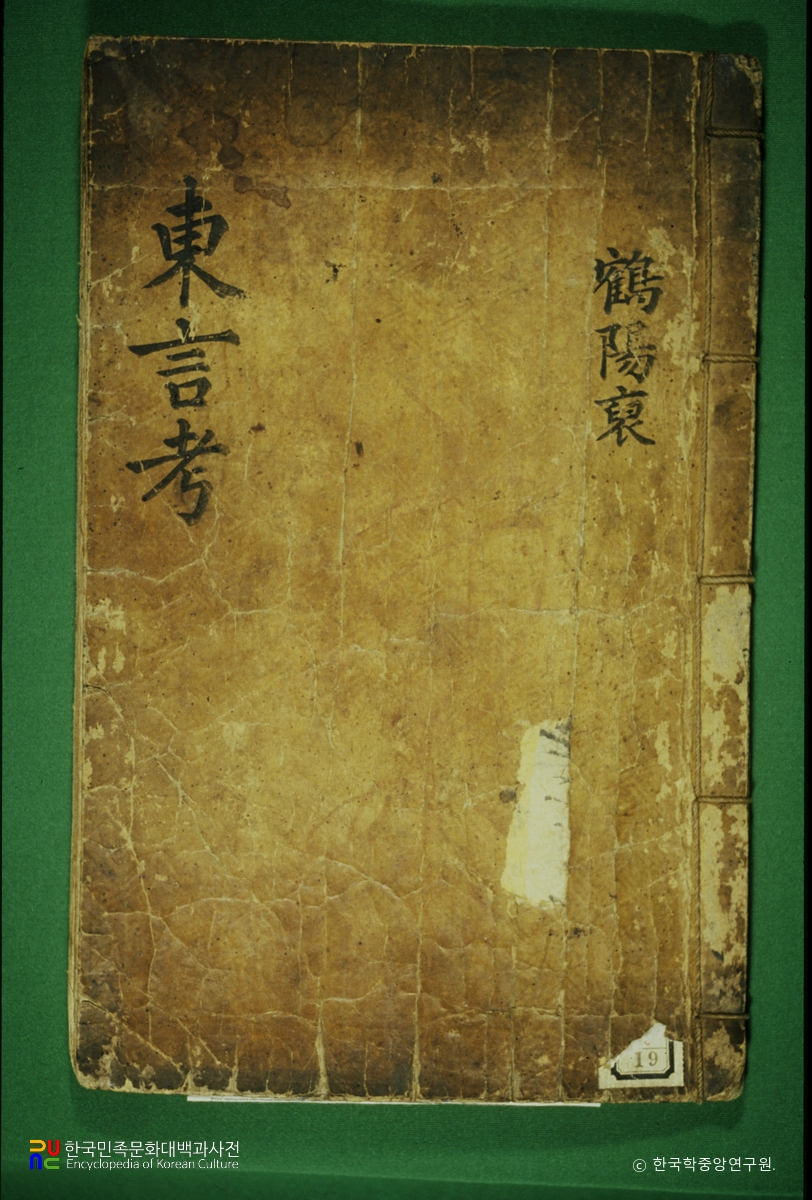 鶴陽裒
東言考
19
한국민족문화대백과사전
Encyclopedia of Korean Culture
© 한국학중앙연구원.